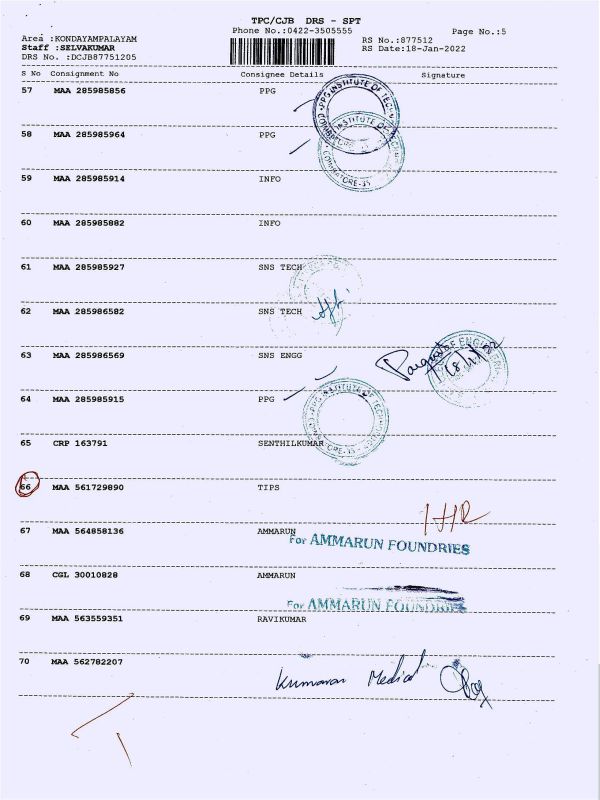 TPC/CJB DRS - SPT
Phone No.:0422-3505555
Page No.:5
Area :KONDAYAMPALAYAM
RS No.:877512
Staff :SELVAKUMAR
RS Date:18-Jan-2022
DRS No. :DCJB87751205
S No Consignment No Consignee Details Signature
57 MAA 285985856 PPG
PPG INSTITUTE OF TECH
58 MAA 285985964 PPG
INSTITUTE OF TECH
COIMBATORE-35
59 MAA 285985914 INFO
60 MAA 285985882 INFO
61 MAA 285985927 SNS TECH
62 MAA 285986582 SNS TECH
63 MAA 285986569 SNS ENGG
OF ENGINEERI
64 MAA 285985915 PPG
PPG INSTITUTE OF TECH
65 CRP 163791 SENTHILKUMAR
66 MAA 561729890 TIPS
67 MAA 564858136 AMMARUN
For AMMARUN FOUNDRIES
68 CGL 30010828 AMMARUN
For AMMARUN FOUNDRIES
69 MAA 563559351 RAVIKUMAR
70 MAA 562782207
Kumaran Medical